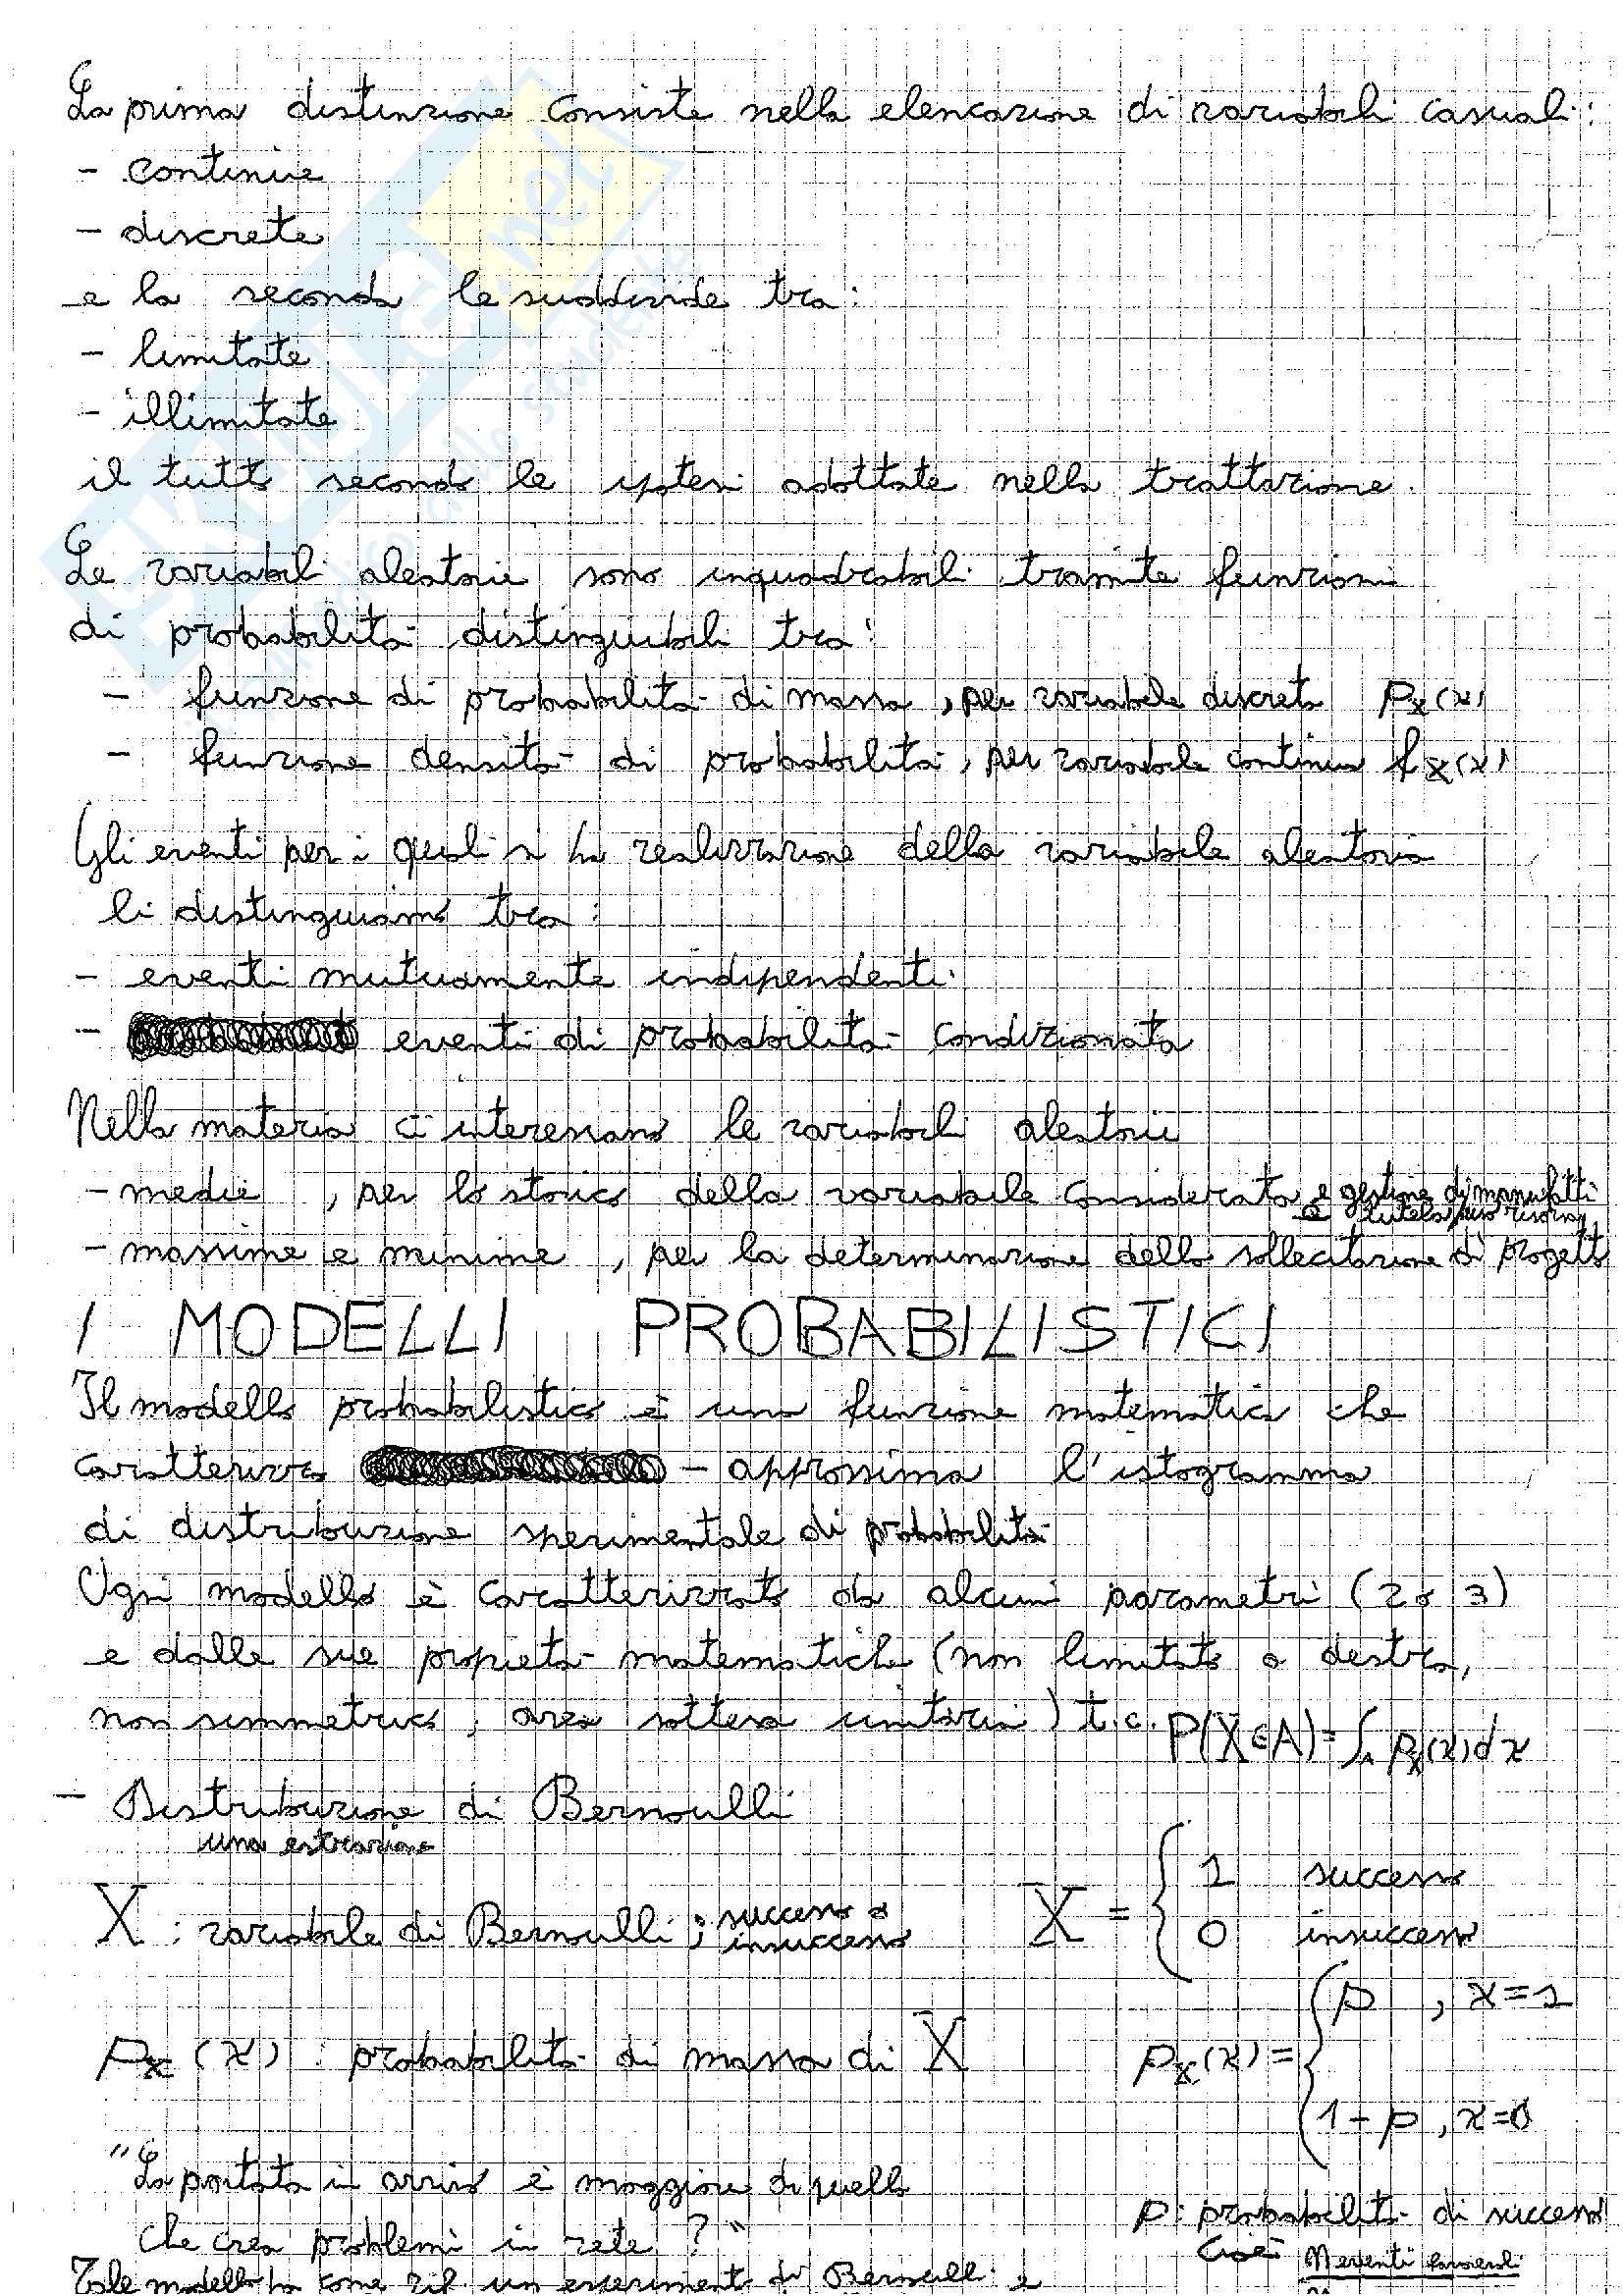 La prima distinzione consiste nella elencazione di variabili casuali:
- continue
- discrete
e la seconda le suddivide tra:
- limitate
- illimitate
il tutto secondo le ipotesi adottate nella trattazione.
Le variabili aleatorie sono inquadrabili tramite funzioni
di probabilità distinguibili tra:
- funzione di probabilità di massa, per variabile discreta Px(x)
- funzione densità di probabilità, per variabile continua fx(x)
Gli eventi per i quali si ha realizzazione della variabile aleatoria
li distinguiamo tra:
- eventi mutuamente indipendenti
- eventi di probabilità condizionata
Nella materia ci interessano le variabili aleatorie
- medie, per lo storico della variabile considerata e gestione di manufatti
e tutela risorsa
- massime e minime, per la determinazione della sollecitazione di progetto
I MODELLI PROBABILISTICI
Il modello probabilistico è una funzione matematica che
caratterizza - approssima l'istogramma
di distribuzione sperimentale di probabilità
Ogni modello è caratterizzato da alcuni parametri (2 o 3)
e dalle sue proprietà matematiche (non limitato a destra,
non simmetrico, area sottesa unitaria) t.c. P(X∈A)=∫A px(x)dx
- Distribuzione di Bernoulli
una estrazione
X : variabile di Bernoulli; successo o insuccesso
X = { 1 successo
0 insuccesso
Px(x) : probabilità di massa di X
Px(x) = { p , x=1
1-p , x=0
"La portata in arrivo è maggiore di quella
che crea problemi in rete?"
p: probabilità di successo
cioè N eventi favorevoli
Tale modello ha come rif. un esperimento di Bernoulli e